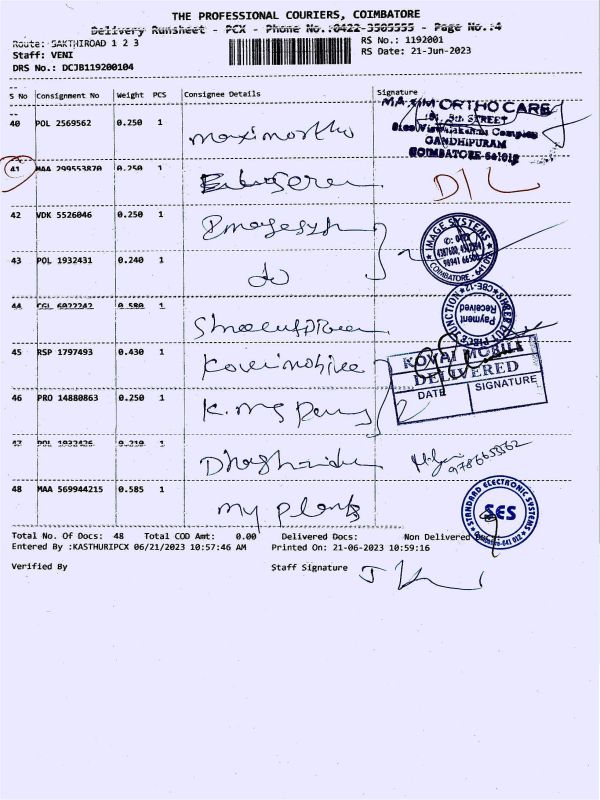 THE PROFESSIONAL COURIERS, COIMBATORE
Delivery Runsheet - PCX - Phone No.:0422-3505555 - Page No.:4
Route: SAKTHIROAD 1 2 3 RS No.: 1192001
Staff: VENI RS Date: 21-Jun-2023
DRS No.: DCJB119200104
S No Consignment No Weight PCS Consignee Details Signature
40 POL 2569562 0.250 1 maximortho
ORTHO CARE
5th STREET
GANDHIPURAM
COIMBATORE-641012
41 MAA 299553870 0.250 1 D/L
42 VDK 5526046 0.250 1
IMAGE SYSTEMS
COIMBATORE
43 POL 1932431 0.240 1 do
44 CGL 6022242 0.580 1
Payment
Received
45 RSP 1797493 0.430 1 Kovai mobile
KOVAI MOBILE
DELIVERED
DATE SIGNATURE
46 PRO 14880863 0.250 1
47 POL 1932426 0.210 1
48 MAA 569944215 0.585 1 my plants
STANDARD ELECTRONIC SYSTEMS
SES
Total No. Of Docs: 48 Total COD Amt: 0.00 Delivered Docs: Non Delivered Docs:
Entered By :KASTHURIPCX 06/21/2023 10:57:46 AM Printed On: 21-06-2023 10:59:16
Verified By Staff Signature